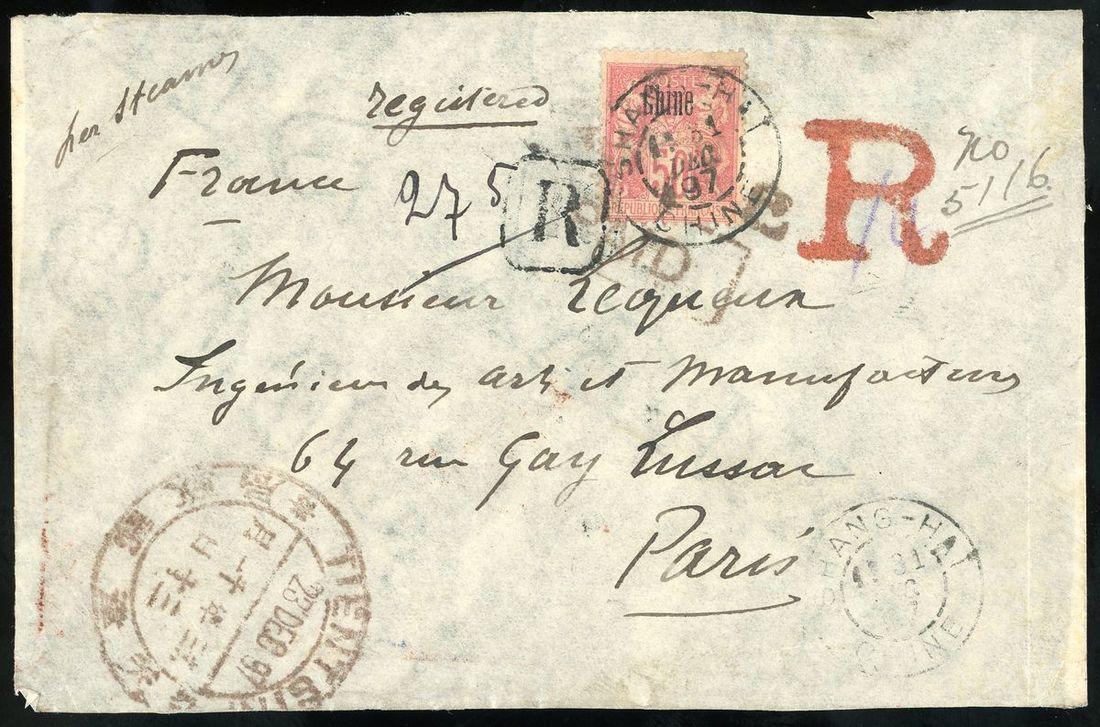 per Steamer
registered
France
275
R
Chine
POSTES
50
SHANG-HAI
31
DEC
97
CHINE
R
No
5116.
PAID
Monsieur Lequeux
Ingénieur des arts et Manufactures
64 rue Gay Lussac
Paris
TIENTSIN
23 DEC 97
SHANG-HAI
31
CHINE